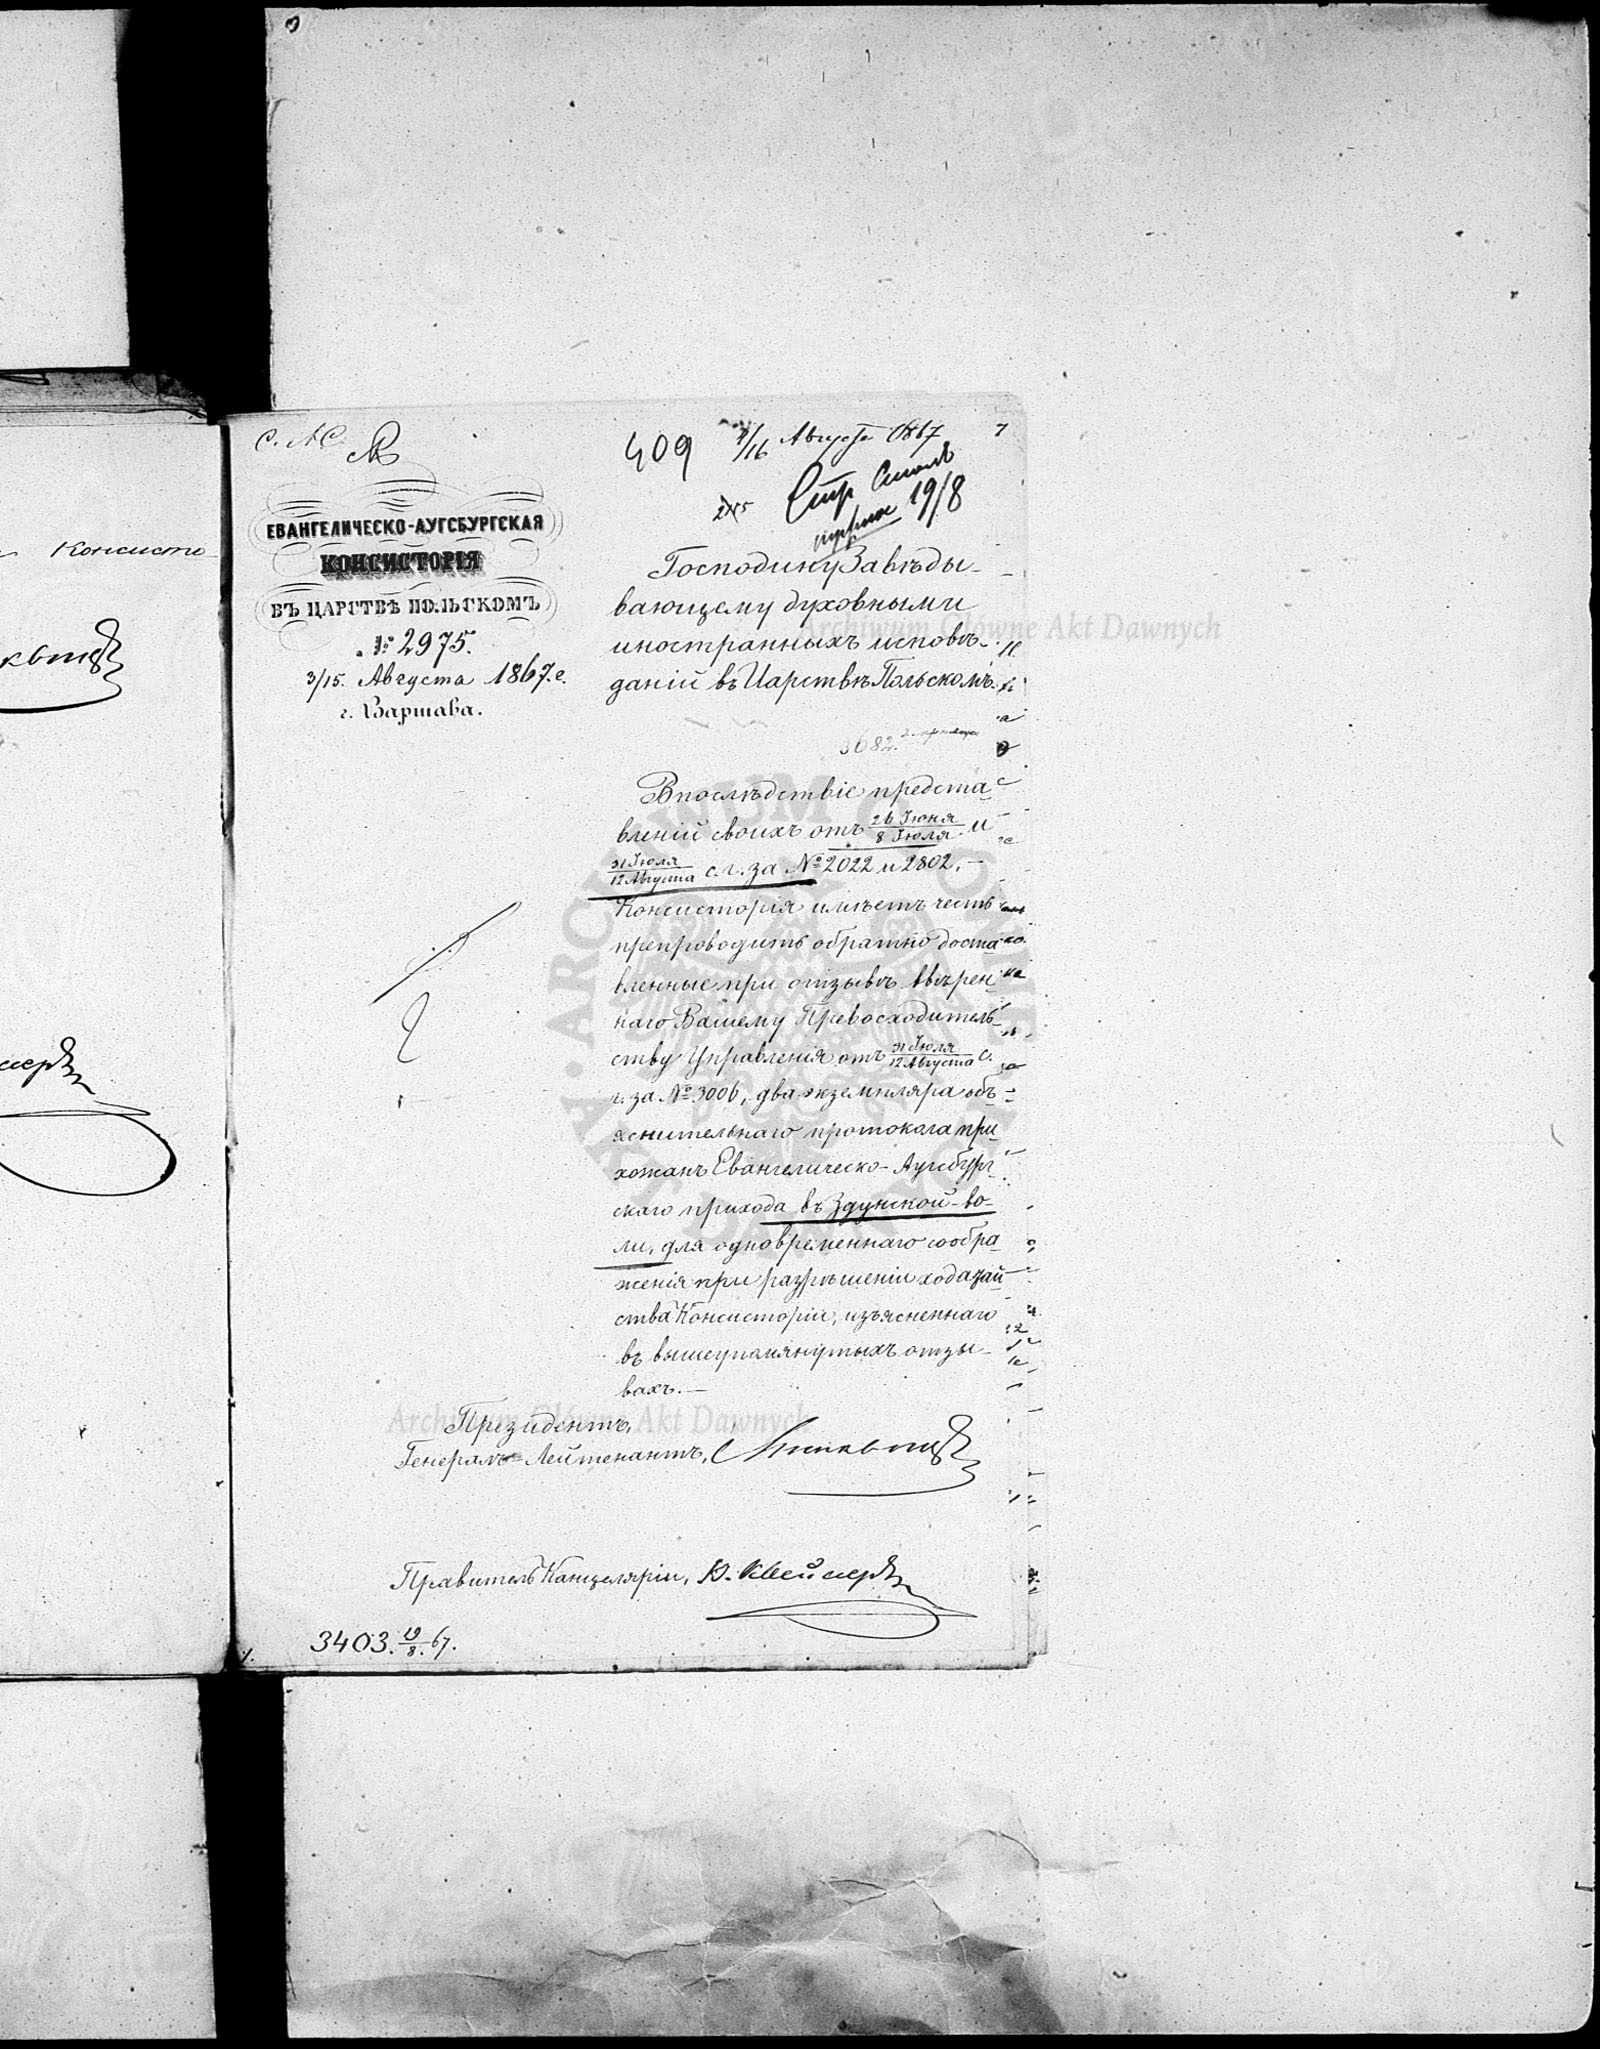 Консисто-
С. А С.
409 4/16 Августа 1867 7
19/8
ЕВАНГЕЛИЧЕСКО-АУГСБУРГСКАЯ
КОНСИСТОРІЯ
ВЪ ЦАРСТВѢ ПОЛЬСКОМЪ
№ 2975.
3/15. Августа 1867. г.
г. Варшава.
Господину Завѣды-
вающему духовными
иностранныхъ исповѣ-
даній въ Царствѣ Польскомъ.
3682.
Впослѣдствіе предста-
вленій своихъ отъ 26 Іюня / 8 Іюля и
31 Іюля / 12 Августа с. г. за № 2022 и 2802, —
Консисторія имѣетъ честь
препроводить обратно доста-
вленные при отзывѣ ввѣрен-
наго Вашему Превосходитель-
ству Управленія отъ 31 Іюля / 12 Августа с.
г. за № 3006, два экземпляра объ-
яснительнаго протокола при-
хожанъ Евангелическо-Аугсбург-
скаго прихода въ Здунской-во-
ли, для одновременнаго сообра-
женія при разрѣшеніи ходатай-
ства Консисторіи, изъясненнаго
въ вышеупомянутыхъ отзы-
вахъ. —
Президентъ,
Генералъ-Лейтенантъ,
Правитель Канцеляріи,
3403. 19/8. 67.
Archiwum Główne Akt Dawnych
Archiwum Główne Akt Dawnych